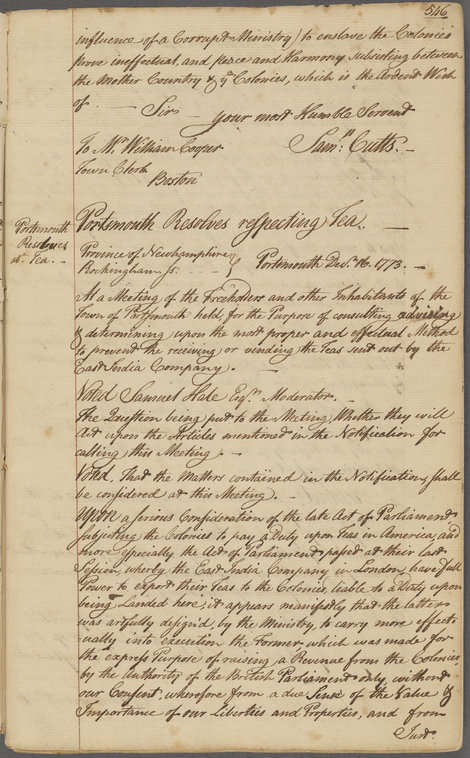 546
influence of a Corrupt Ministry) to enslave the Colonies
prove ineffectual, and peace and Harmony subsisting between
the Mother Country & ye Colonies, which is the Ardent Wish
of — Sir — your most Humble Servent
To Mr. William Cooper Saml. Cutts. —
Town Clerk
Boston
Portsmouth Resolves respecting Tea. —
Portsmouth
Resolves
at. Tea. —
Province of Newhampshire }
Rockingham Ss. } Portsmouth Decr. 16. 1773. —
At a Meeting of the Freeholders and other Inhabitants of the
Town of Portsmouth held, for the Purpose of consulting advising
& determining upon the most proper and effectual Method
to prevent the receiving or vending the Teas sent out by the
East India Company. —
Voted Samuel Hale Esqr. Moderator. —
The Question being put to the Meeting, Whether they will
Act upon the Articles mentioned in the Notification for
calling this Meeting. —
Voted, That the Matters contained in the Notification, shall
be considered at this Meeting. —
Upon a serious Consideration of the late Act of Parliament
subjecting the Colonies to pay a Duty upon Teas in America, and
more especially the Act of Parliament passed at their last
Session, whereby the East India Company in London, have full
Power to export their Teas to the Colonies, liable to a Duty upon
being Landed here, it appears manifestly that the latter
was artfully design'd by the Ministry, to carry more effect-
-ually into execution the Former which was made for
the express Purpose of raising a Revenue from the Colonies,
by the Authority of the British Parliament only, without
our Consent, wherefore from a due Sense of the Value &
Importance of our Liberties and Properties, and from
Just